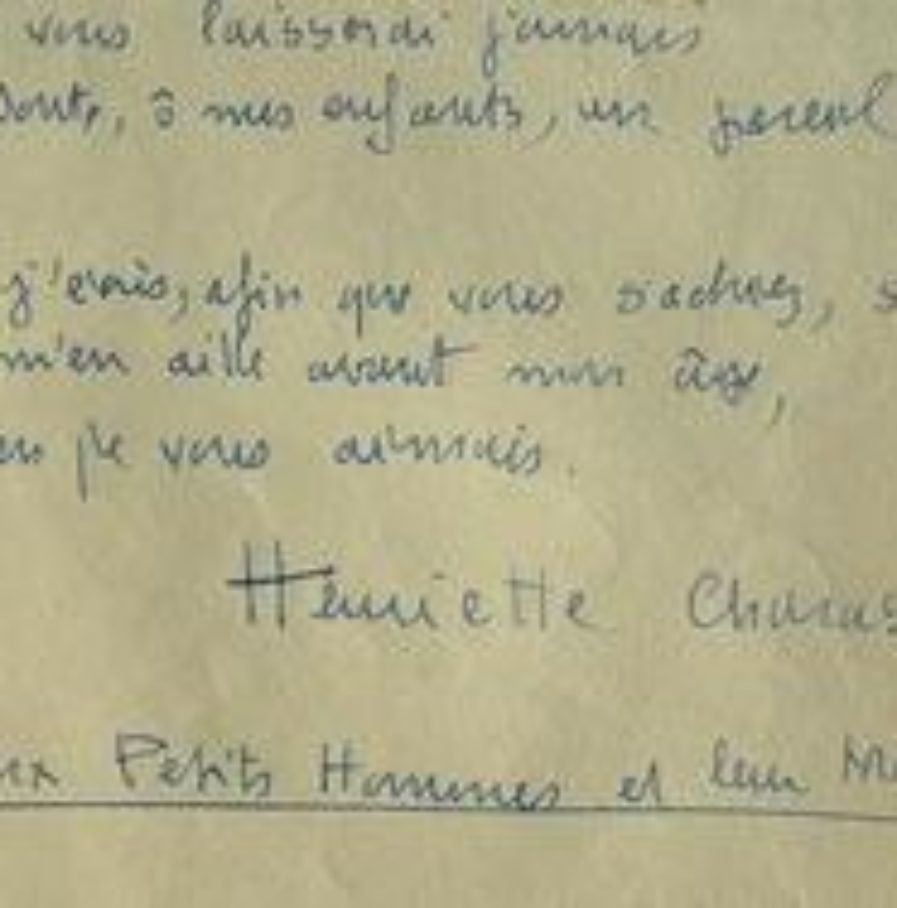 vous laisserai jamais
Doute, ô mes enfants, un pareil
j'écris, afin que vous sachiez, s
m'en aille avant mon âge,
en je vous aimais.
Henriette Charas
ux Petits Hommes et leur M